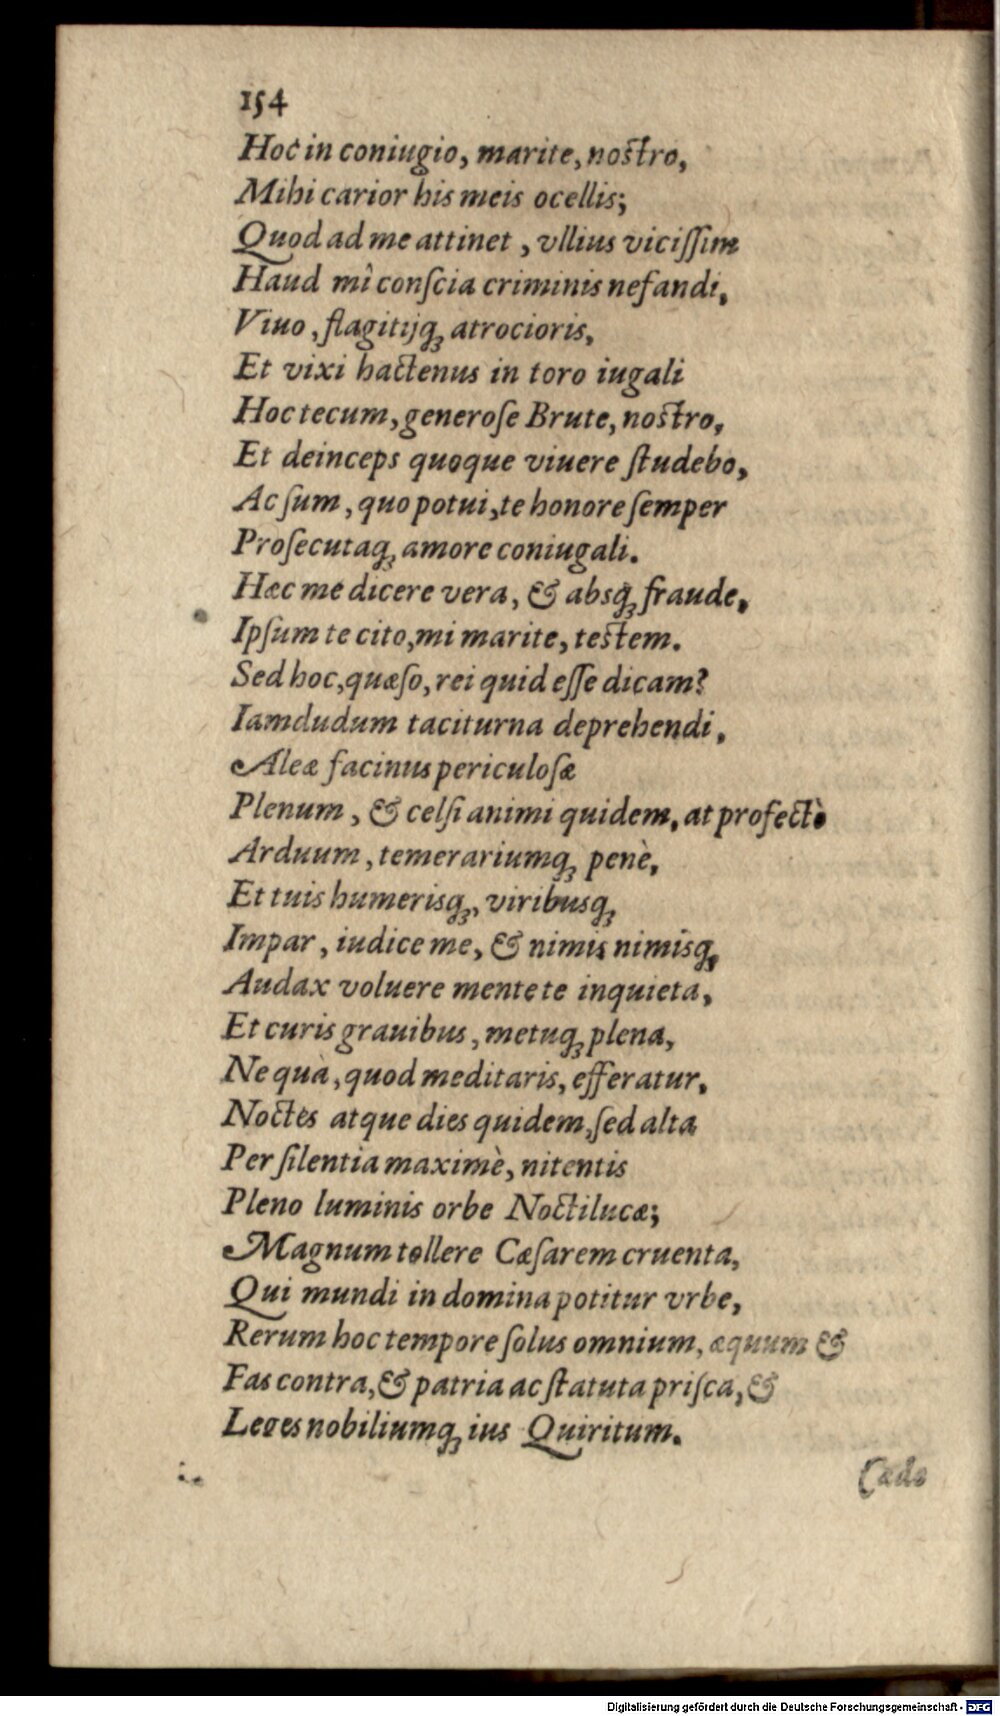 154
Hoc in coniugio, marite, nostro,
Mihi carior his meis ocellis;
Quod ad me attinet, vllius viciſſim
Haud mî conſcia criminis nefandi,
Viuo, flagitijq́; atrocioris,
Et vixi hactenus in toro iugali
Hoc tecum, generoſe Brute, nostro,
Et deinceps quoque viuere ſtudebo,
Ac ſum, quo potui, te honore ſemper
Proſecutaq; amore coniugali.
Hæc me dicere vera, & absq; fraude,
Ipſum te cito, mi marite, testem.
Sed hoc, quæſo, rei quid eſſe dicam?
Iamdudum taciturna deprehendi,
Aleæ facinus periculoſæ
Plenum, & celſi animi quidem, at profectò
Arduum, temerariumq; penè,
Et tuis humerisq;, viribusq;
Impar, iudice me, & nimis nimisq;
Audax voluere mente te inquieta,
Et curis grauibus, metuq; plena,
Ne quà, quod meditaris, efferatur,
Noctes atque dies quidem, ſed alta
Per ſilentia maximè, nitentis
Pleno luminis orbe Noctilucæ;
Magnum tollere Cæſarem cruenta,
Qui mundi in domina potitur vrbe,
Rerum hoc tempore ſolus omnium, æquum &
Fas contra, & patria ac ſtatuta priſca, &
Leges nobiliumq; ius Quiritum.
Cæde
Digitalisierung gefördert durch die Deutsche Forschungsgemeinschaft - DFG